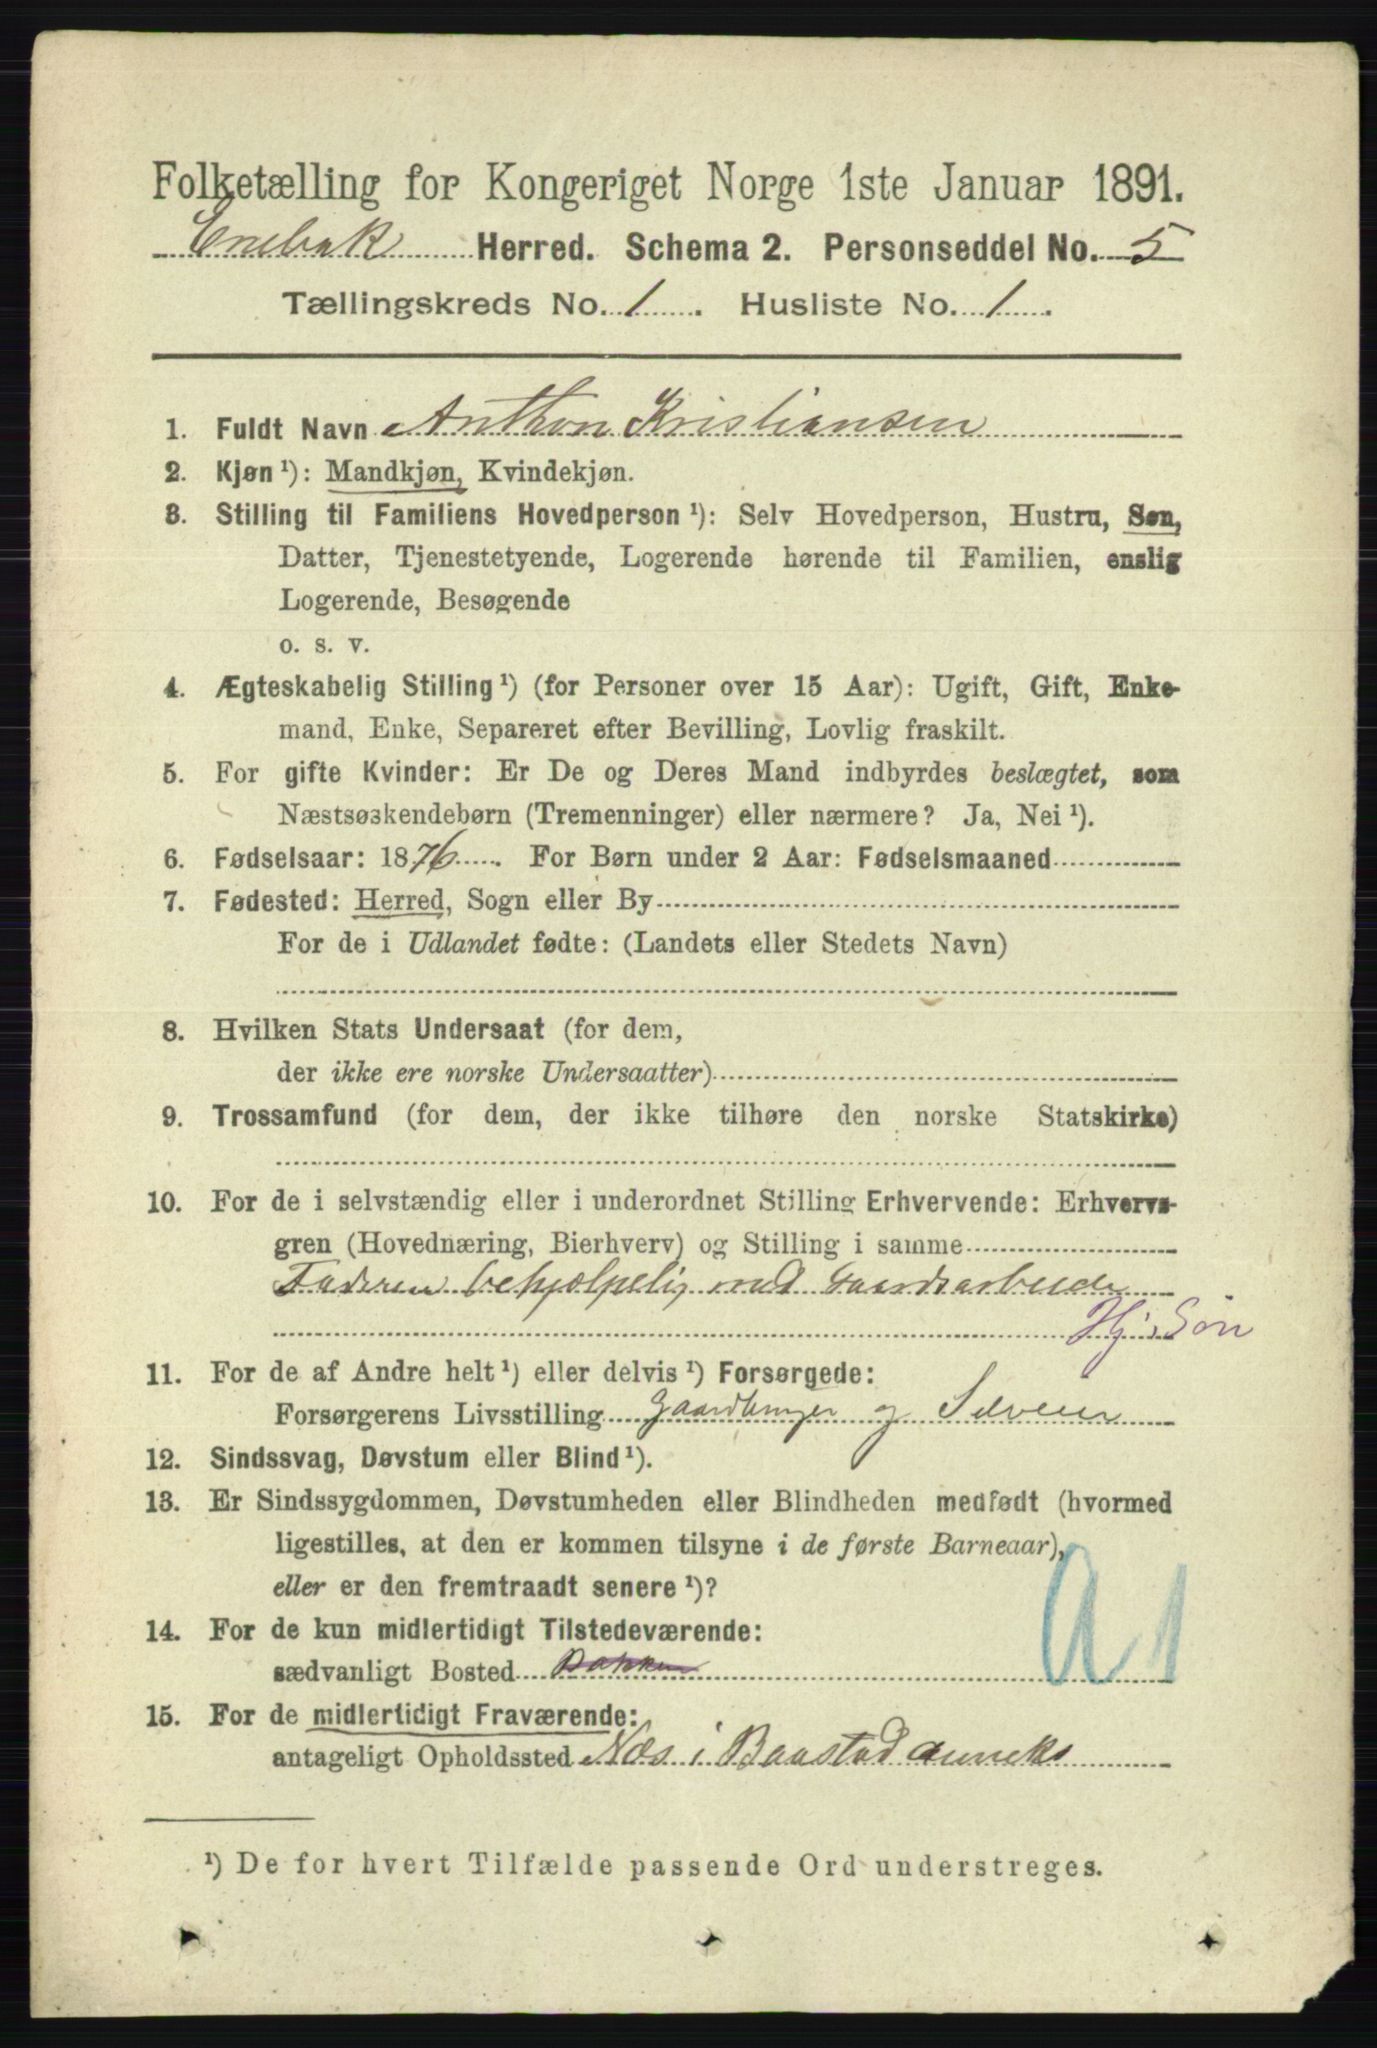 Folketælling for Kongeriget Norge 1ste Januar 1891.
Enebak Herred. Schema 2. Personseddel No. 5
Tællingskreds No. 1. Husliste No. 1.
1. Fuldt Navn Anthon Kristiansen
2. Kjøn ¹): Mandkjøn, Kvindekjøn.
3. Stilling til Familiens Hovedperson ¹): Selv Hovedperson, Hustru, Søn,
Datter, Tjenestetyende, Logerende hørende til Familien, enslig
Logerende, Besøgende
o. s. v.
4. Ægteskabelig Stilling ¹) (for Personer over 15 Aar): Ugift, Gift, Enke-
mand, Enke, Separeret efter Bevilling, Lovlig fraskilt.
5. For gifte Kvinder: Er De og Deres Mand indbyrdes beslægtet, som
Næstsøskendebørn (Tremenninger) eller nærmere? Ja, Nei ¹).
6. Fødselsaar: 1876. For Børn under 2 Aar: Fødselsmaaned
7. Fødested: Herred, Sogn eller By
For de i Udlandet fødte: (Landets eller Stedets Navn)
8. Hvilken Stats Undersaat (for dem,
der ikke ere norske Undersaatter)
9. Trossamfund (for dem, der ikke tilhøre den norske Statskirke)
10. For de i selvstændig eller i underordnet Stilling Erhvervende: Erhvervs-
gren (Hovednæring, Bierhverv) og Stilling i samme
Faderen behjælpelig med Gaardsarbeide
Hj. Søn
11. For de af Andre helt ¹) eller delvis ¹) Forsørgede:
Forsørgerens Livsstilling Gaardbruger og Selveier
12. Sindssvag, Døvstum eller Blind ¹).
13. Er Sindssygdommen, Døvstumheden eller Blindheden medfødt (hvormed
ligestilles, at den er kommen tilsyne i de første Barneaar),
eller er den fremtraadt senere ¹)?
14. For de kun midlertidigt Tilstedeværende:
sædvanligt Bosted Bakken
15. For de midlertidigt Fraværende:
antageligt Opholdssted Næs i Baastad anneks
¹) De for hvert Tilfælde passende Ord understreges.